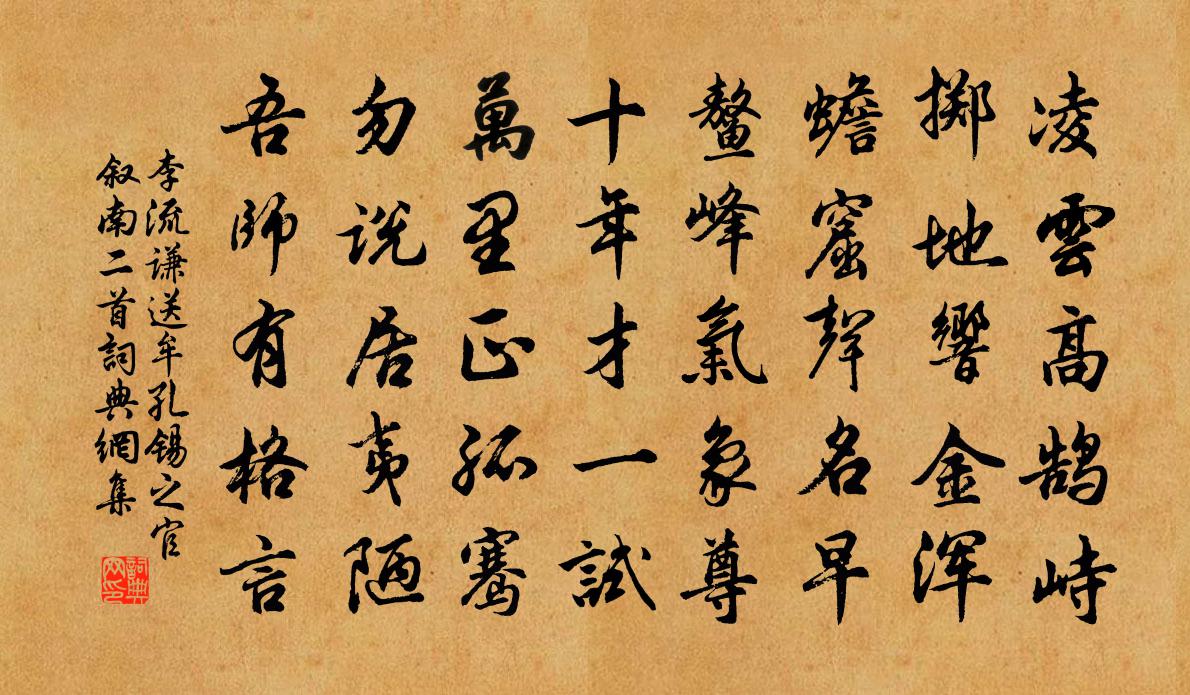 凌雲高鹄峙
掷地響金浑
蟾窟聲名早
鳌峰氣象尊
十年才一試
萬里正孤騫
勿説居夷陋
吾師有格言
李流谦送牟孔锡之官
叙南二首詞典網集
詞典网印